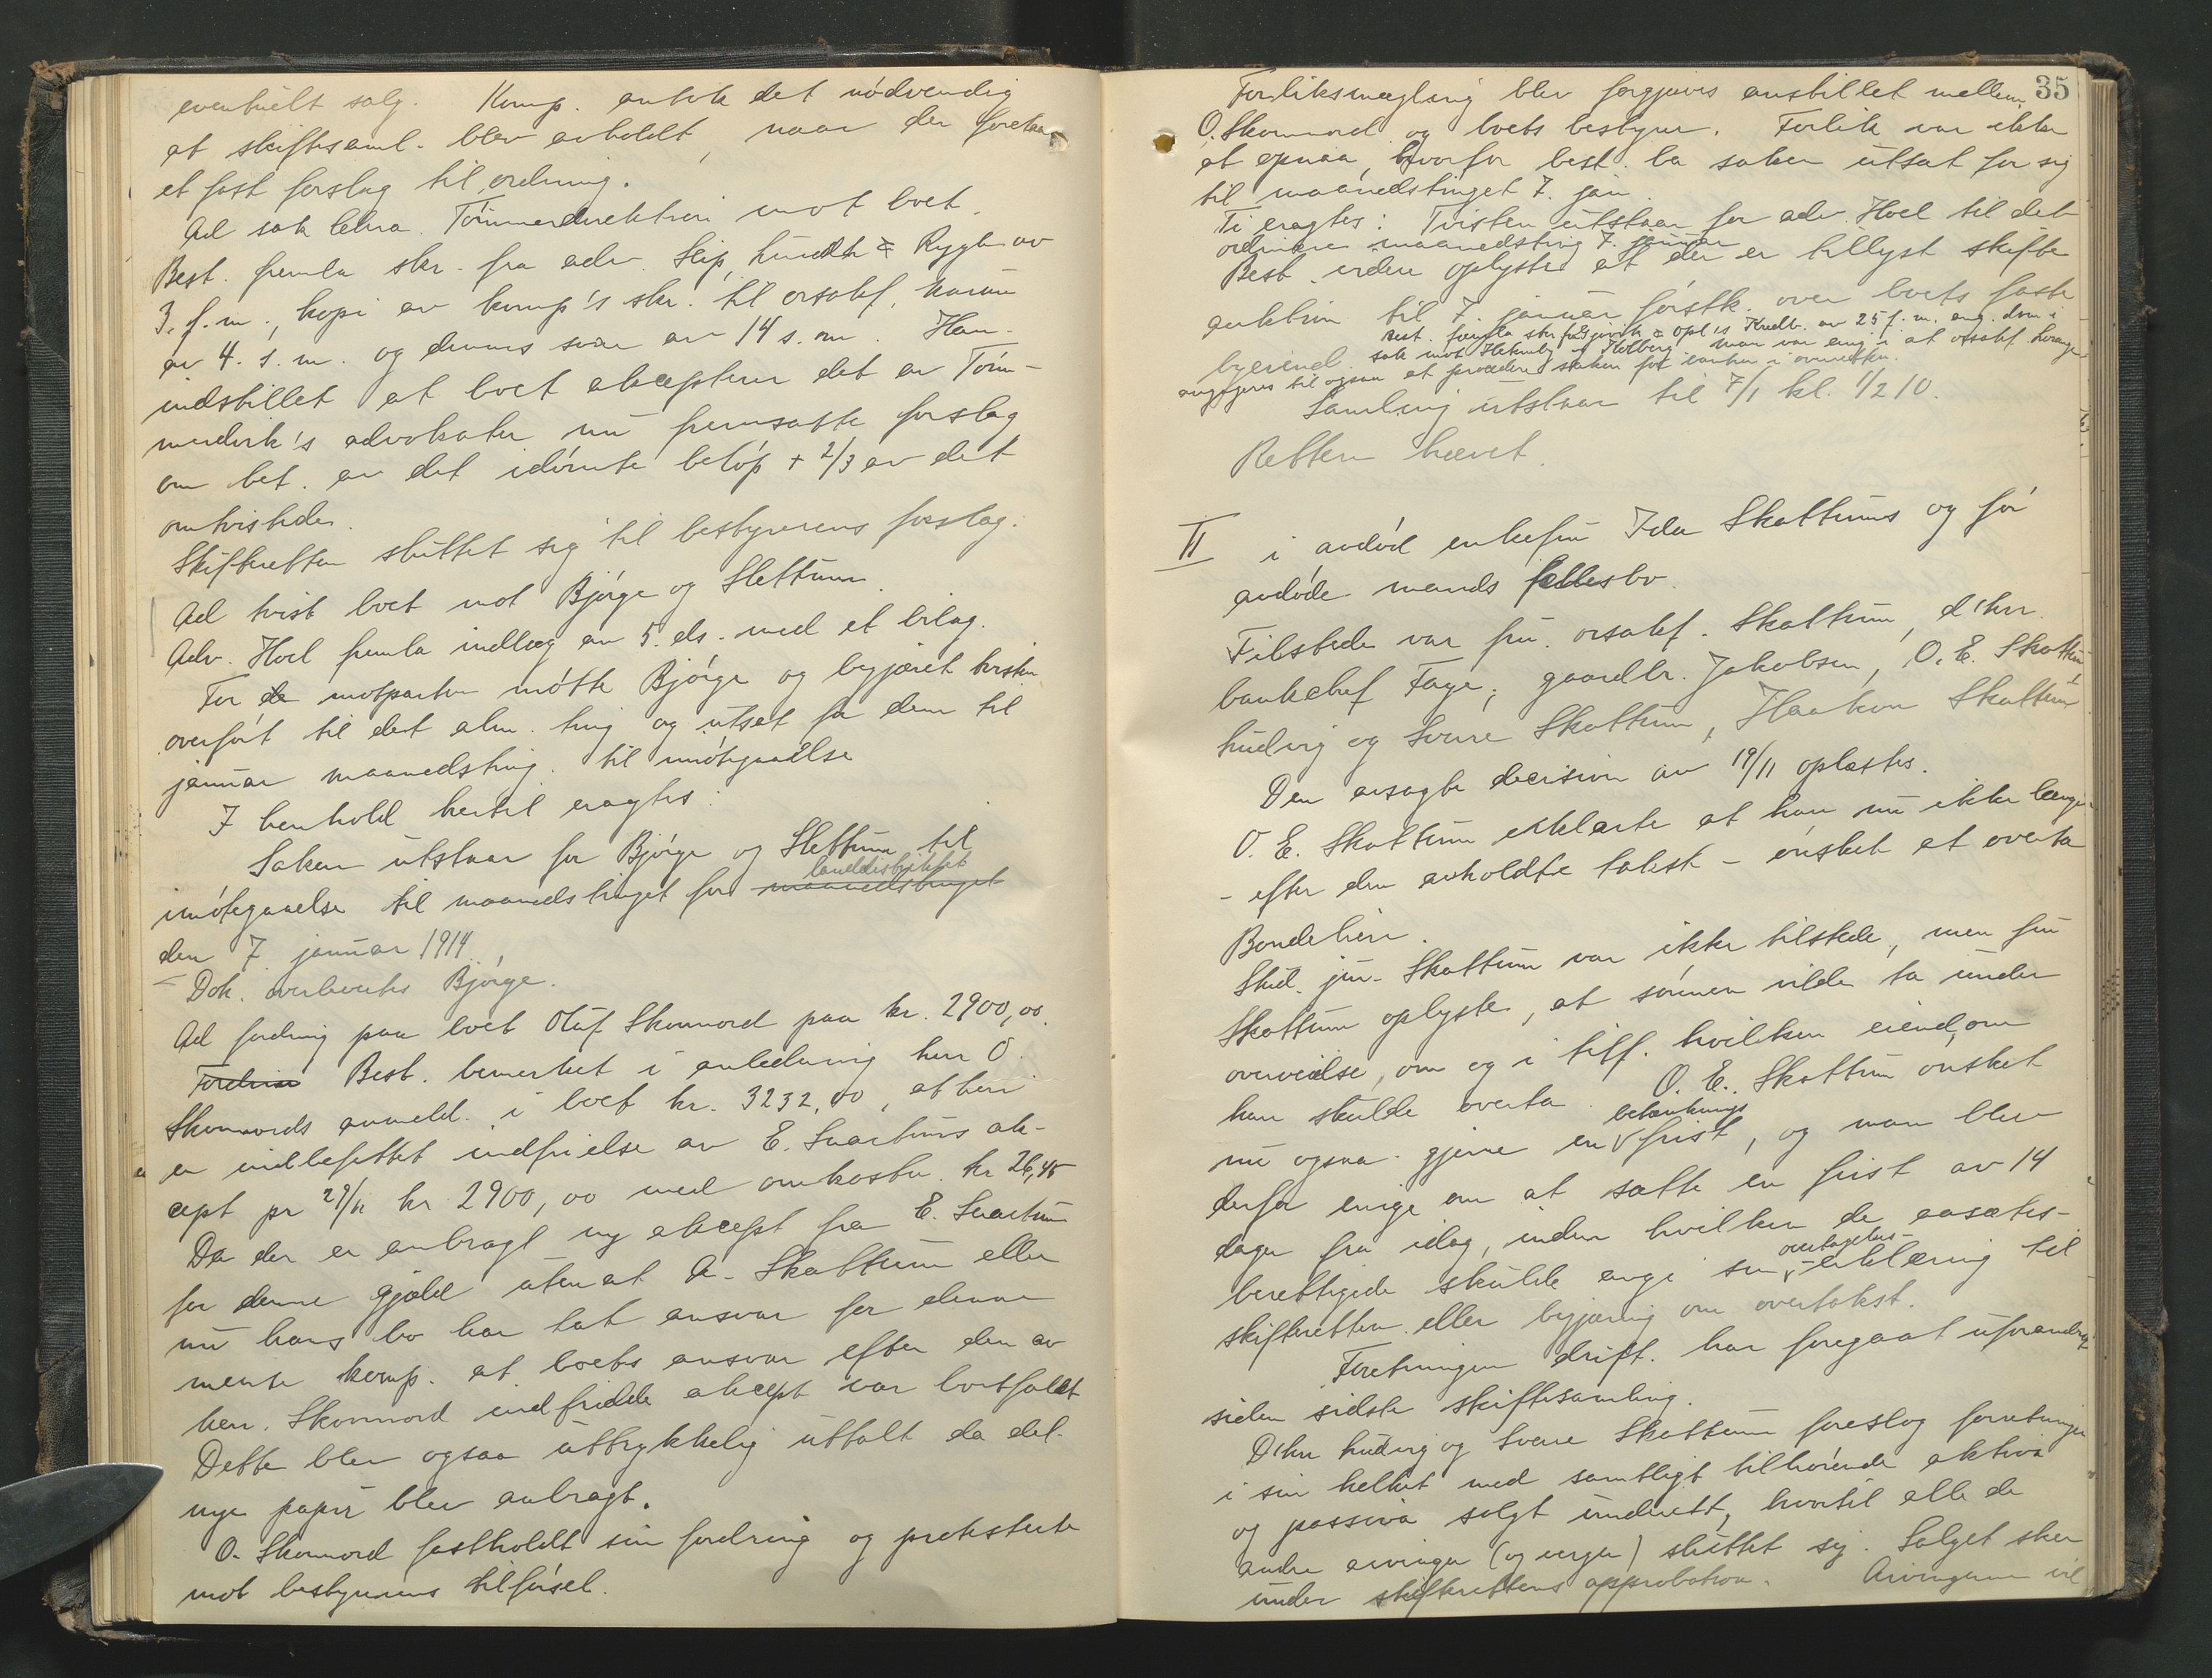 eventuelt salg. Komp. antok det nödvendig
at skiftesaml. blev avholdt, naar der foretaas
et fast forslag til ordning.
Ad sak Tömmerdirektion mot boet.
Best. fremla skr. fra adv. Slip, & Rygh av
3. f.m., kopi av komp's skr. til orsakf.
av 4. s.m. og dennes svar av 14 s.m. Han
indstillet at boet aksepterer det av Töm-
merdirk's advokater nu fremsatte forslag
om bet. av det idömte belöp + 2/3 av det
omtvistede.
Skifteretten sluttet sig til bestyrerens forslag.
Ad tvist boet mot Björge og Slettum
Adv. Hoel fremla indlæg av 5. ds. med et bilag.
For motparten mötte Björge og begjæret tvisten
overfört til det alm. ting og utsat for dem til
januar maanedsting. til imötegaaelse
I henhold hertil eragtes:
Saken utstaar for Björge og Slettum til
landdistriktet
imötegaaelse til maanedstinget for maanedstinget
den 7. januar 1914.
Dok. overleveres Björge.
Ad fordring paa boet Oluf Skonnord paa kr. 2900,00.
Best. bemerket i anledning herr O.
Skonnords anmeld. i boet kr. 3232,00, at heri
er indbefattet indfrielse av E. Svartums ak-
cept pr 29/11 kr 2900,00 med omkostn. kr 26,45
Da der er anbragt ny akcept fra E. Svartum
for denne gjæld uten at A. Skattum eller
nu hans bo har tat ansvar for denne
mente komp. at boets ansvar efter den av
herr. Skonnord indfridde akcept var bortfaldt
Dette blev ogsaa uttrykkelig uttalt da det
nye papir blev anbragt.
O. Skonnord fastholdt sin fordring og protesterte
mot bestyrerens tilförsel.
35
Forliksmægling blev forgjæves anstillet mellem
O. Skonnord og boets bestyrer. Forlik var ikke
at opnaa, hvorfor best. ba saken utsat for sig
til maanedstinget 7. jan
Ti eragtes: Tvisten utstaar for adv. Hoel til det
ordinære maanedsting 7. januar
Best. videre oplyste at der er tillyst skifte
auktion til 7. januar förstk. over boets faste
best. fremla skr fra & Opl's Kredb. av 25 f.m. ang. dom i
byeiend. sak mot og Holberg man var enig i at orsakf.
engageres til ogsaa at procedere saken for banken i overretten.
Samling utstaar til 7/1 kl. 1/2 10.
Retten hævet.
II i avdöd enkefru Ida Skattums og för
avdöde mands fællesbo.
Tilstede var fru orsakf. Skattum, d'hrr.
bankchef Faye, gaardbr. Jakobsen, O. E. Skattum,
Ludvig og Sverre Skattum, Haakon Skattum
Den avsagte decision av 19/11 oplæstes.
O. E. Skattum erklærte at han nu ikke længer
- efter den avholdte takst - önsket at overta
Bondelien.
Stud. jur. Skattum var ikke tilstede, men fru
Skattum oplyste, at sönnen vilde ta under
overveielse, om og i tilf. hvilken eiendom
han skulde overta. O. E. Skattum önsket
betænknings
nu ogsaa gjerne en frist, og man blev
derfor enige om at sætte en frist av 14
dager fra idag, inden hvilken de aasætes-
overtagelses-
berettigede skulde avgi sin erklæring til
skifteretten eller begjæring om overtakst.
Forretningen drift. har foregaat uforandret
siden sidste skiftesamling.
D'hrr Ludvig og Sverre Skattum foreslog forretningen
i sin helhet med samtligt tilhörende aktiva
og passiva solgt underett, hvortil alle de
andre arvinger (og verger) sluttet sig. Salget sker
under skifterettens approbation. Arvingerne vil